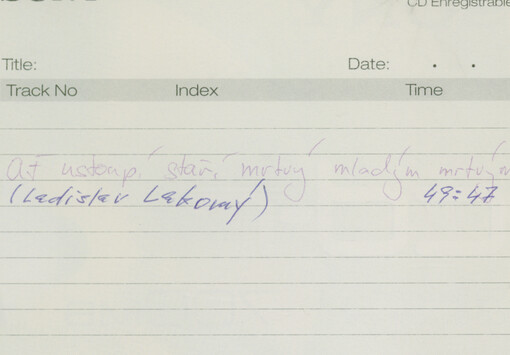 CD Enregistrable
Title: Date: . .
Track No Index Time
Ať ustoupí staří mrtvý mladým mrtvým
(Ladislav Lakomý) 49:47